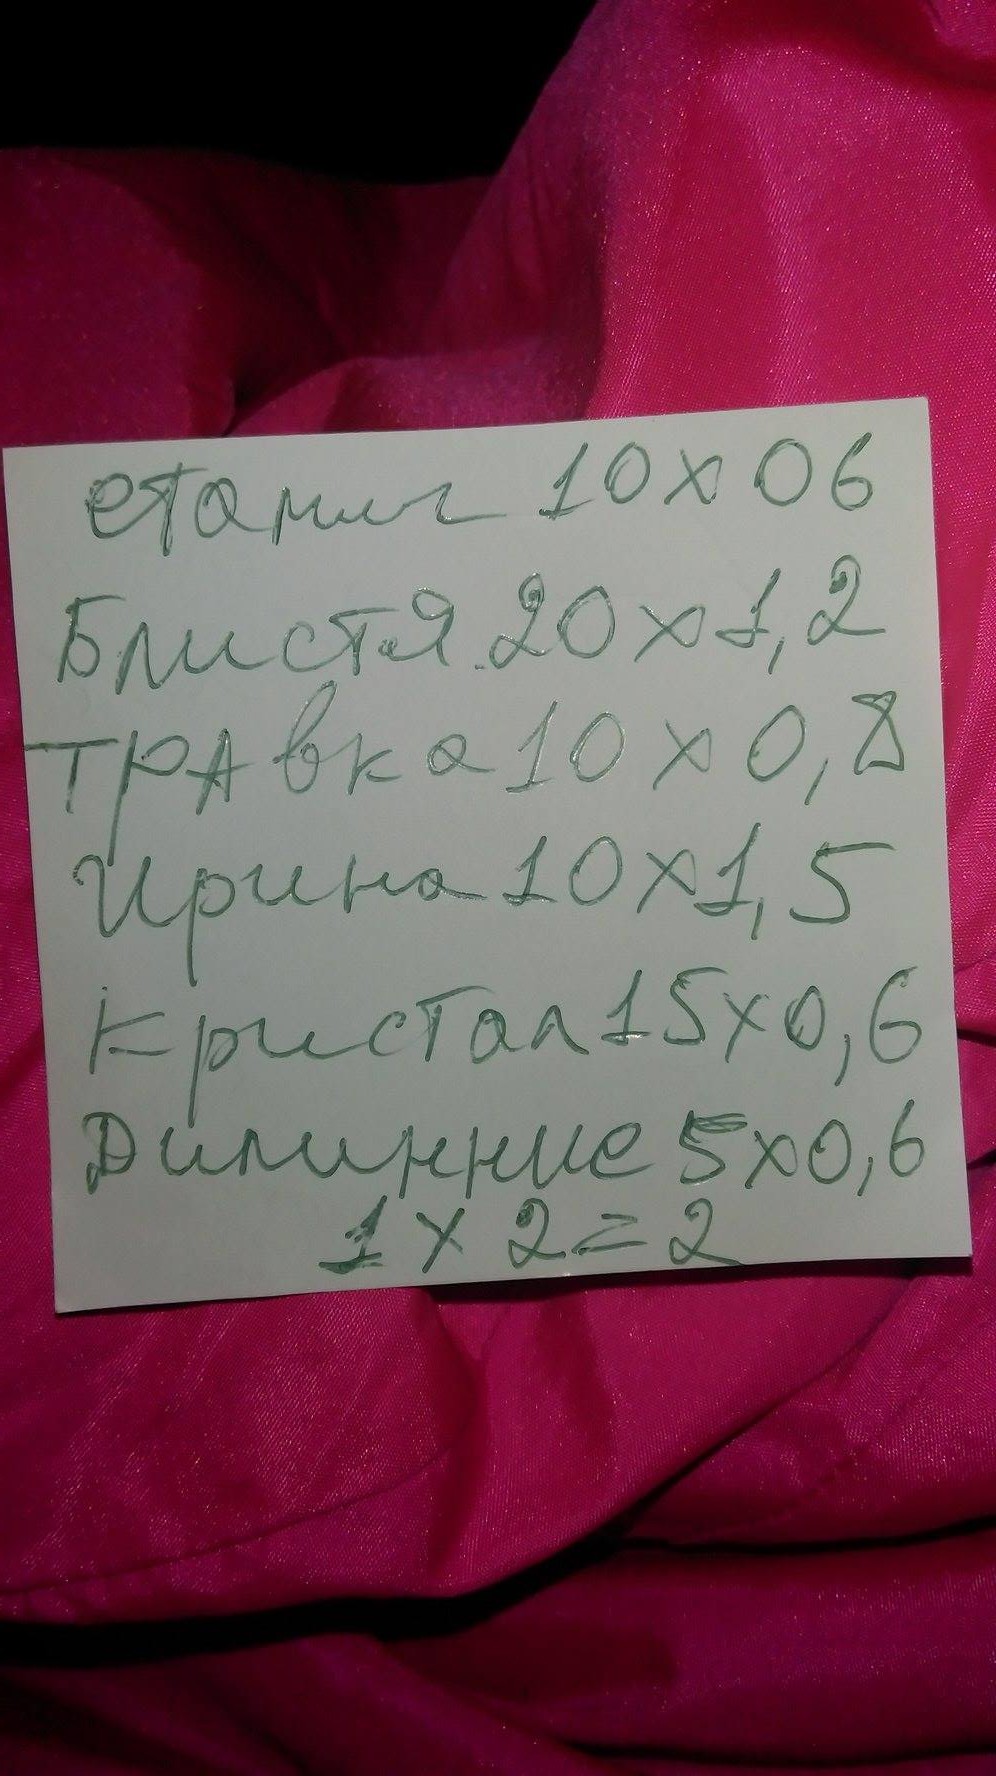 етамиг 10 х 06
Блистя 20 х 1,2
трАвка 10 х 0,8
Ирина 10 х 1,5
Кристал 15 х 0,6
Длинние 5 х 0,6
1 х 2 = 2